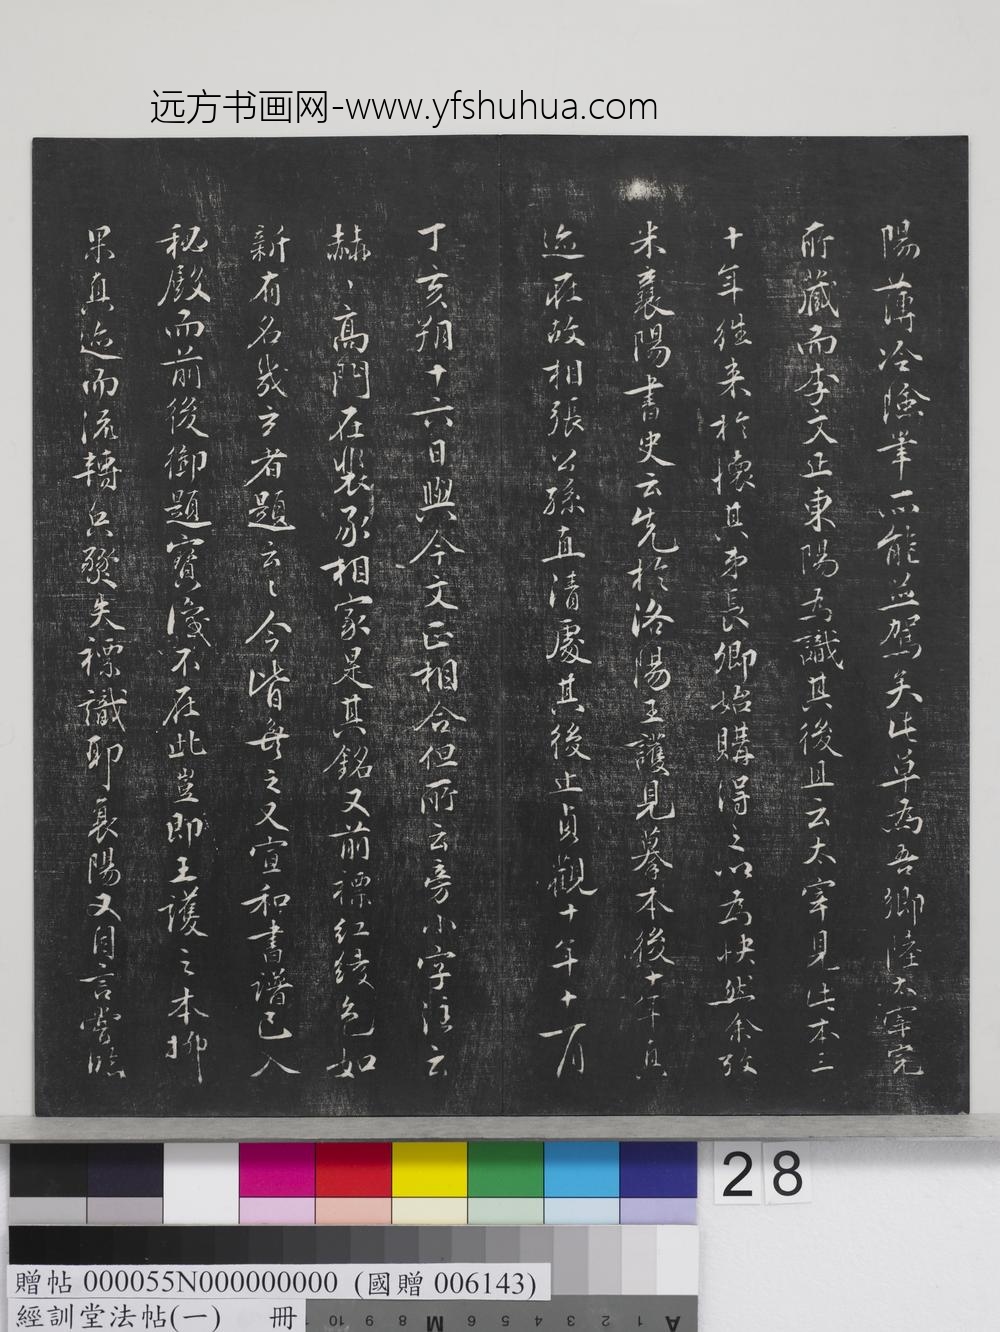 远方书画网-www.yfshuhua.com
陽薄冷險筆不能並駕矣此草為吾鄉陸太宰完
所藏而李文正東陽為識其後且云太宰見此本三
十年往來於懷其弟長卿始購得之以為快然余攷
米襄陽書史云先於洛陽王護見摹本後十年真
迹在故相張公孫直清處其後止貞觀十年十一月
丁亥朔十六日與今文正相合但所云旁小字注云
赫、高門在裴家相家是其銘又前標紅綾色如
新有名幾玄者題云、今皆無之又宣和書譜已入
秘殿而前後御題寶 不在此豈即王護之本抑
果真迹而流轉兵燹失標識耶襄陽又自言嘗臨
28
贈帖 000055N000000000 (國贈 006143)
經訓堂法帖(一) 冊
10 9 8 M 6 5 4 3 2 1 A